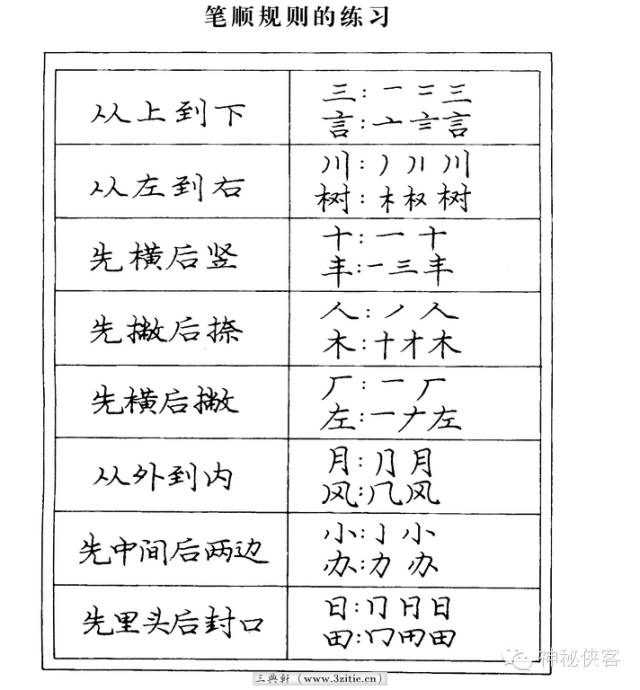 笔顺规则的练习
从上到下
三:一 二 三
言:亠 言
从左到右
川:丿 川
树:木 权 树
先横后竖
十:一 十
丰:一 三 丰
先撇后捺
人:丿 人
木:十 才 木
先横后撇
厂:一 厂
左:一 ナ 左
从外到内
月:⺆ 月
风:几 风
先中间后两边
小:亅 小
办:力 办
先里头后封口
日:冂 日 日
田:冂 田
三典轩(www.3zitie.cn)
神秘侠客